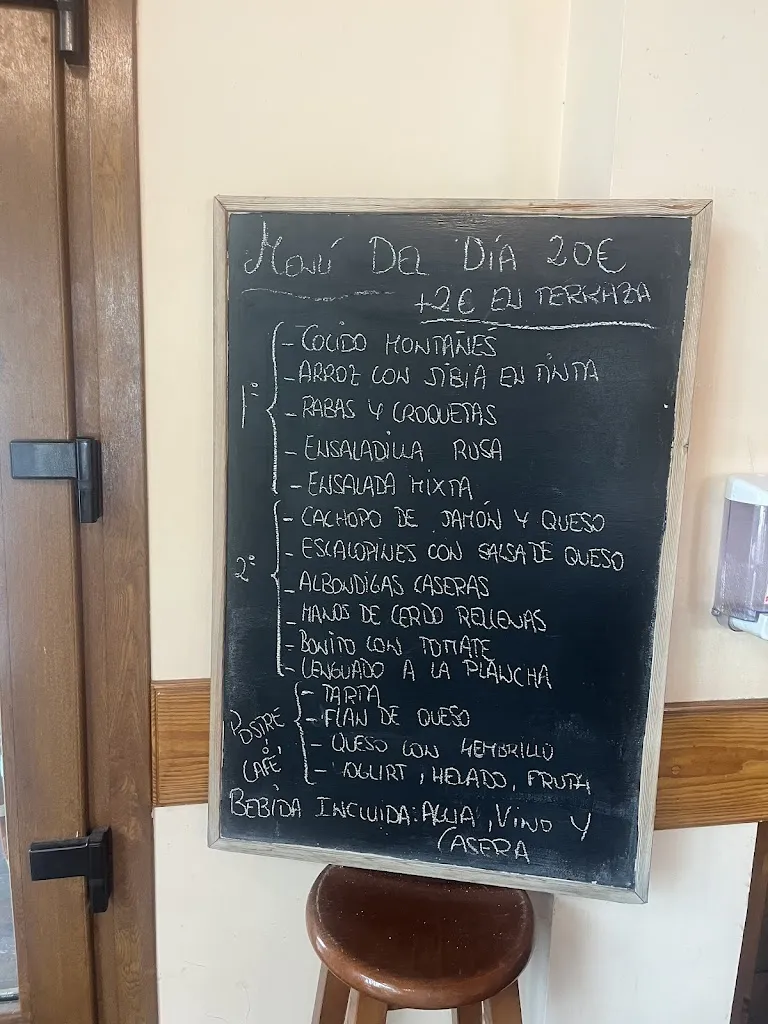 Menú Del Día 20€
+2€ EN TERRAZA
1º
- COCIDO MONTAÑES
- ARROZ CON SIBIA EN TINTA
- RABAS Y CROQUETAS
- ENSALADILLA RUSA
- ENSALADA MIXTA
2º
- CACHOPO DE JAMÓN Y QUESO
- ESCALOPINES CON SALSA DE QUESO
- ALBONDIGAS CASERAS
- MANOS DE CERDO RELLENAS
- BONITO CON TOMATE
- LENGUADO A LA PLANCHA
POSTRE
ó
CAFÉ
- TARTA
- FLAN DE QUESO
- QUESO CON MEMBRILLO
- YOGURT, HELADO, FRUTA
BEBIDA INCLUIDA: AGUA, VINO Y
CASERA